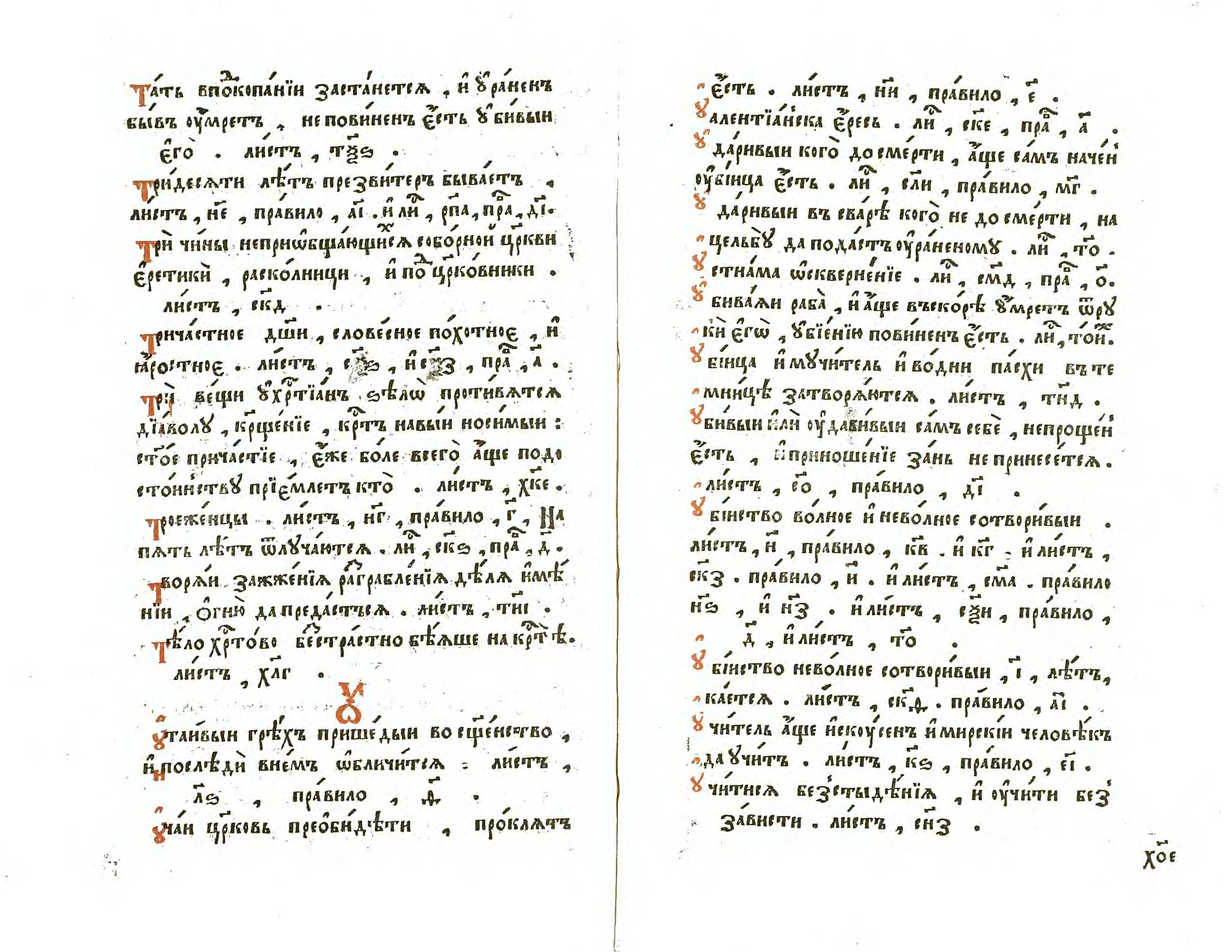 Та́ть впоⷣкопа́нїи заста́нетсѧ , и҆ ᲂу҆ра́ненъ
бы́въ ᲂу҆́мретъ , не пови́ненъ є҆́сть ᲂу҆би́выи
є҆го̀ . ли́стъ , тѯ҃ѕ .
Три́десѧти лѣ́тъ презви́теръ быва́етъ ,
ли́стъ , н҃е , пра́вило , а҃і . и҆ лиⷭ҇ , рп҃а , праⷡ , д҃і .
Трѝ чи́ны неприѡбща́ющиⷯсѧ собо́рной цр҃кви
є҆ретикѝ , раско́лницы , и҆ поⷣцр҃ко́вники .
ли́стъ , ск҃д .
Трича́стное дш҃и , слове́сное по́хотное , и҆
ꙗ҆́ростное . ли́стъ , праⷡ , а҃ .
Трѝ ве́щи ᲂу҆ хрⷭ҇тїа́нъ ѕѣлѡ̀ проти́вѧтсѧ
дїа́волꙋ , крⷳ҇ще́нїе , крⷭ҇тъ на вы́и носи́мыи :
ст҃о́е прича́стїе , є҆́же бо́ле всего̀ а҆́ще подо
сто́инствꙋ прїе́млетъ кто̀ . ли́стъ , хк҃е .
Трое́женцы . ли́стъ , н҃г , пра́вило , г҃ , На
пѧ́ть лѣ́тъ ѿлꙋча́ютсѧ . лиⷭ҇ , ск҃ѕ , праⷡ , д҃ .
Творѧ́и зажже́нїѧ разграбле́нїѧ дѣ́лѧ и҆мѣ́
нїи , ѻ҆гню̀ да преда́стъсѧ . ли́стъ , ти҃і .
Тѣ́ло хрⷭ҇то́во беⷥстра́стно бѣ́ѧше на крⷭ҇тѣ̀ .
ли́стъ , хл҃г .
Ꙋ
ᲂу҆таи́выи грѣ́хъ прише́дыи во сщ҃е́нство ,
и҆ послѣдѝ в не́мъ ѡ҆бличи́тсѧ : ли́стъ ,
л҃ѕ , пра́вило , д҃ .
ᲂу҆ча́и цр҃ковь преѻби́дѣти , про́клѧтъ
є҆́сть . ли́стъ , н҃и , пра́вило , є҃ .
Ꙋ҆алентїа́нска є҆́ресь . лиⷭ҇ , ск҃е , праⷡ , а҃ .
Ꙋ҆да́ривыи кого̀ до сме́рти , а҆́ще са́мъ наче́нъ
ᲂу҆бі́ица є҆́сть . лиⷭ҇ , сл҃и , пра́вило , м҃г .
Ꙋ҆да́ривыи въ сва́рѣ кого̀ не до сме́рти , на
цельбꙋ̀ да пода́стъ ᲂу҆ра́неномꙋ . лиⷭ҇ , то҃ .
Ꙋ҆стна́ма ѡ҆скверне́нїе . лиⷭ҇ , см҃д , праⷡ , ѻ҃ .
Ꙋ҆бива́ѧи раба̀ , и҆ а҆́ще въско́рѣ ᲂу҆́мретъ ѿ рꙋ
кѝ є҆гѡ̀ , ᲂу҆бїе́нїю пови́ненъ є҆́сть . лиⷭ҇ , то҃и .
Ꙋ҆бі́ица и҆ мꙋчи́тель и҆ во дни̑ па́схи въ те
мни́цѣ затворѧ́ютсѧ . ли́стъ , тн҃д .
Ꙋ҆би́выи и҆лѝ ᲂу҆дави́выи са́мъ себѐ , непроще́н
є҆́сть , и҆ приноше́нїе за́нь не принесе́тсѧ .
ли́стъ , со҃ , пра́вило , д҃і .
Ꙋ҆бі́иство во́лное и҆ нево́лное сотвори́выи .
ли́стъ , н҃ , пра́вило , к҃в . и҆ к҃г : и҆ ли́стъ ,
ск҃з . пра́вило , и҃ . и҆ ли́стъ , см҃а . пра́вило
н҃ѕ , и҆ н҃з . и҆ ли́стъ , сѯ҃и , пра́вило ,
д҃ , и҆ ли́стъ , то҃ .
Ꙋ҆бі́иство нево́лное сотвори́выи , і҃ , лѣ́тъ ,
ка́етсѧ . ли́стъ , ск҃д . пра́вило , а҃і .
Ꙋ҆чи́тель а҆́ще и҆скꙋ́сенъ и҆ мирскі́и человѣ́къ
да ᲂу҆́читъ . ли́стъ , к҃ѕ , пра́вило , є҃і .
Ꙋ҆чи́тисѧ без̾стыдѣ́нїѧ , и҆ ᲂу҆чи́ти без̾
за́висти . ли́стъ , сн҃з .
хо҃е